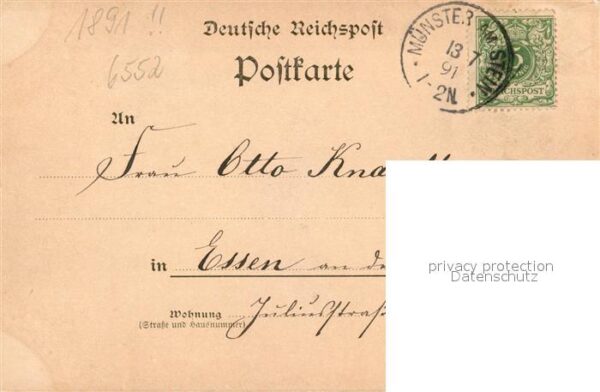 1891 !!
6552
Deutsche Reichspost
Postkarte
MÜNSTER AM STEIN
13 7
91
1-2N.
REICHSPOST
An
Frau Otto
in Essen an
Wohnung
(Straße und Hausnummer)
privacy protection
Datenschutz